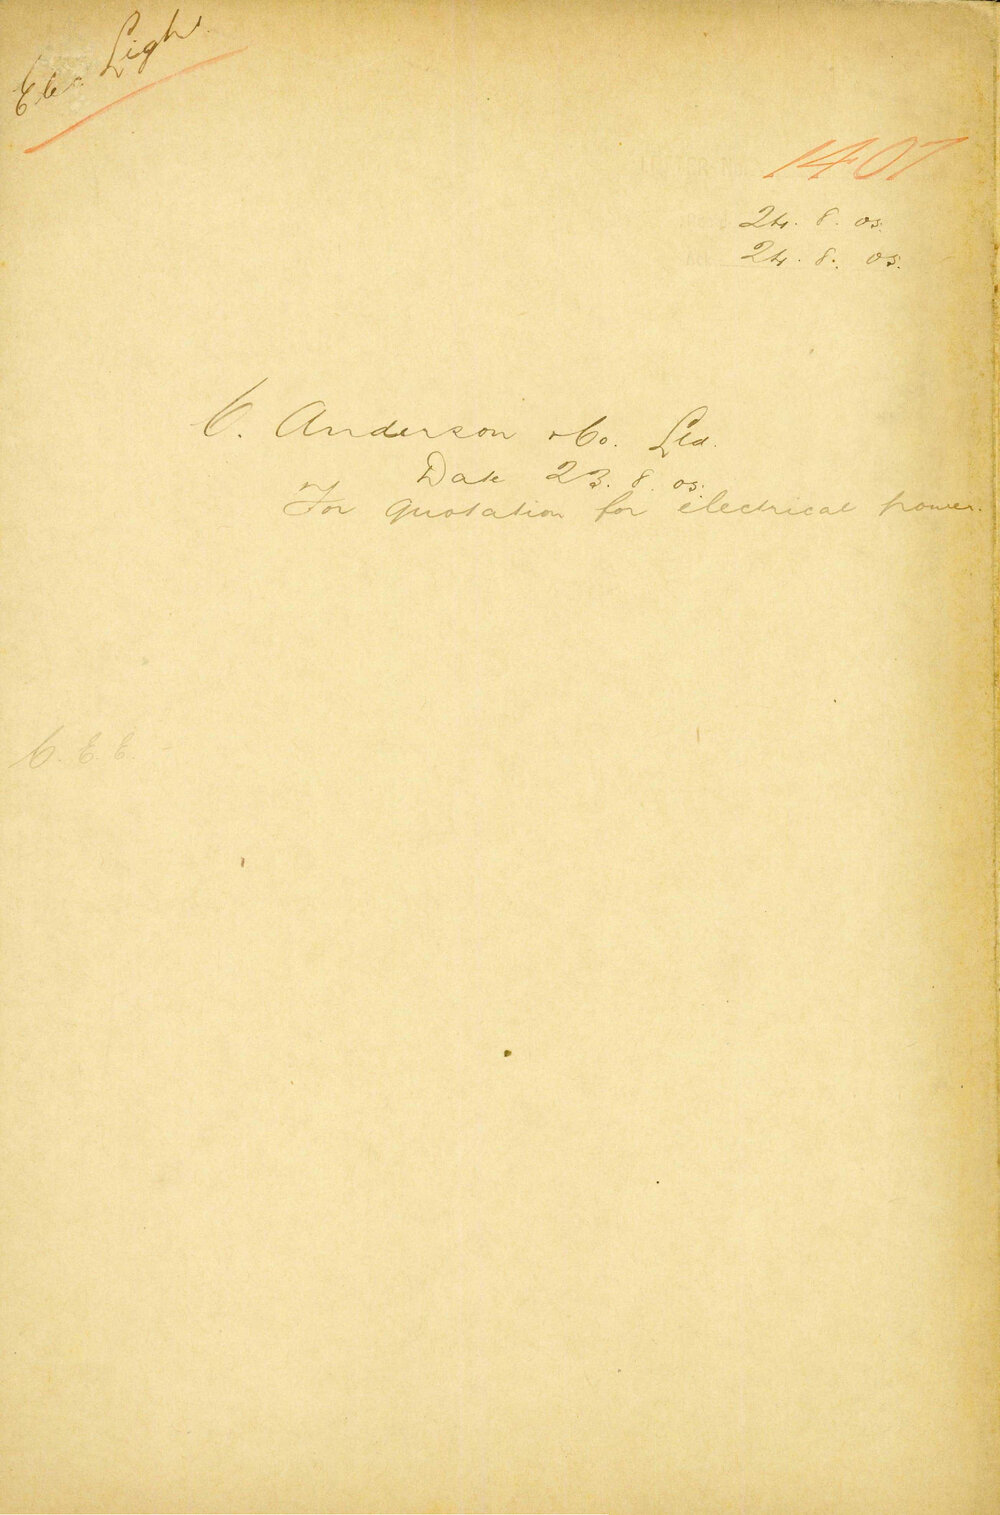 Elec Light
1407
24. 8. 05.
24. 8. 05.
C. Anderson & Co. Ltd.
Date 23. 8. 05.
For quotation for electrical power.
C. E. E.